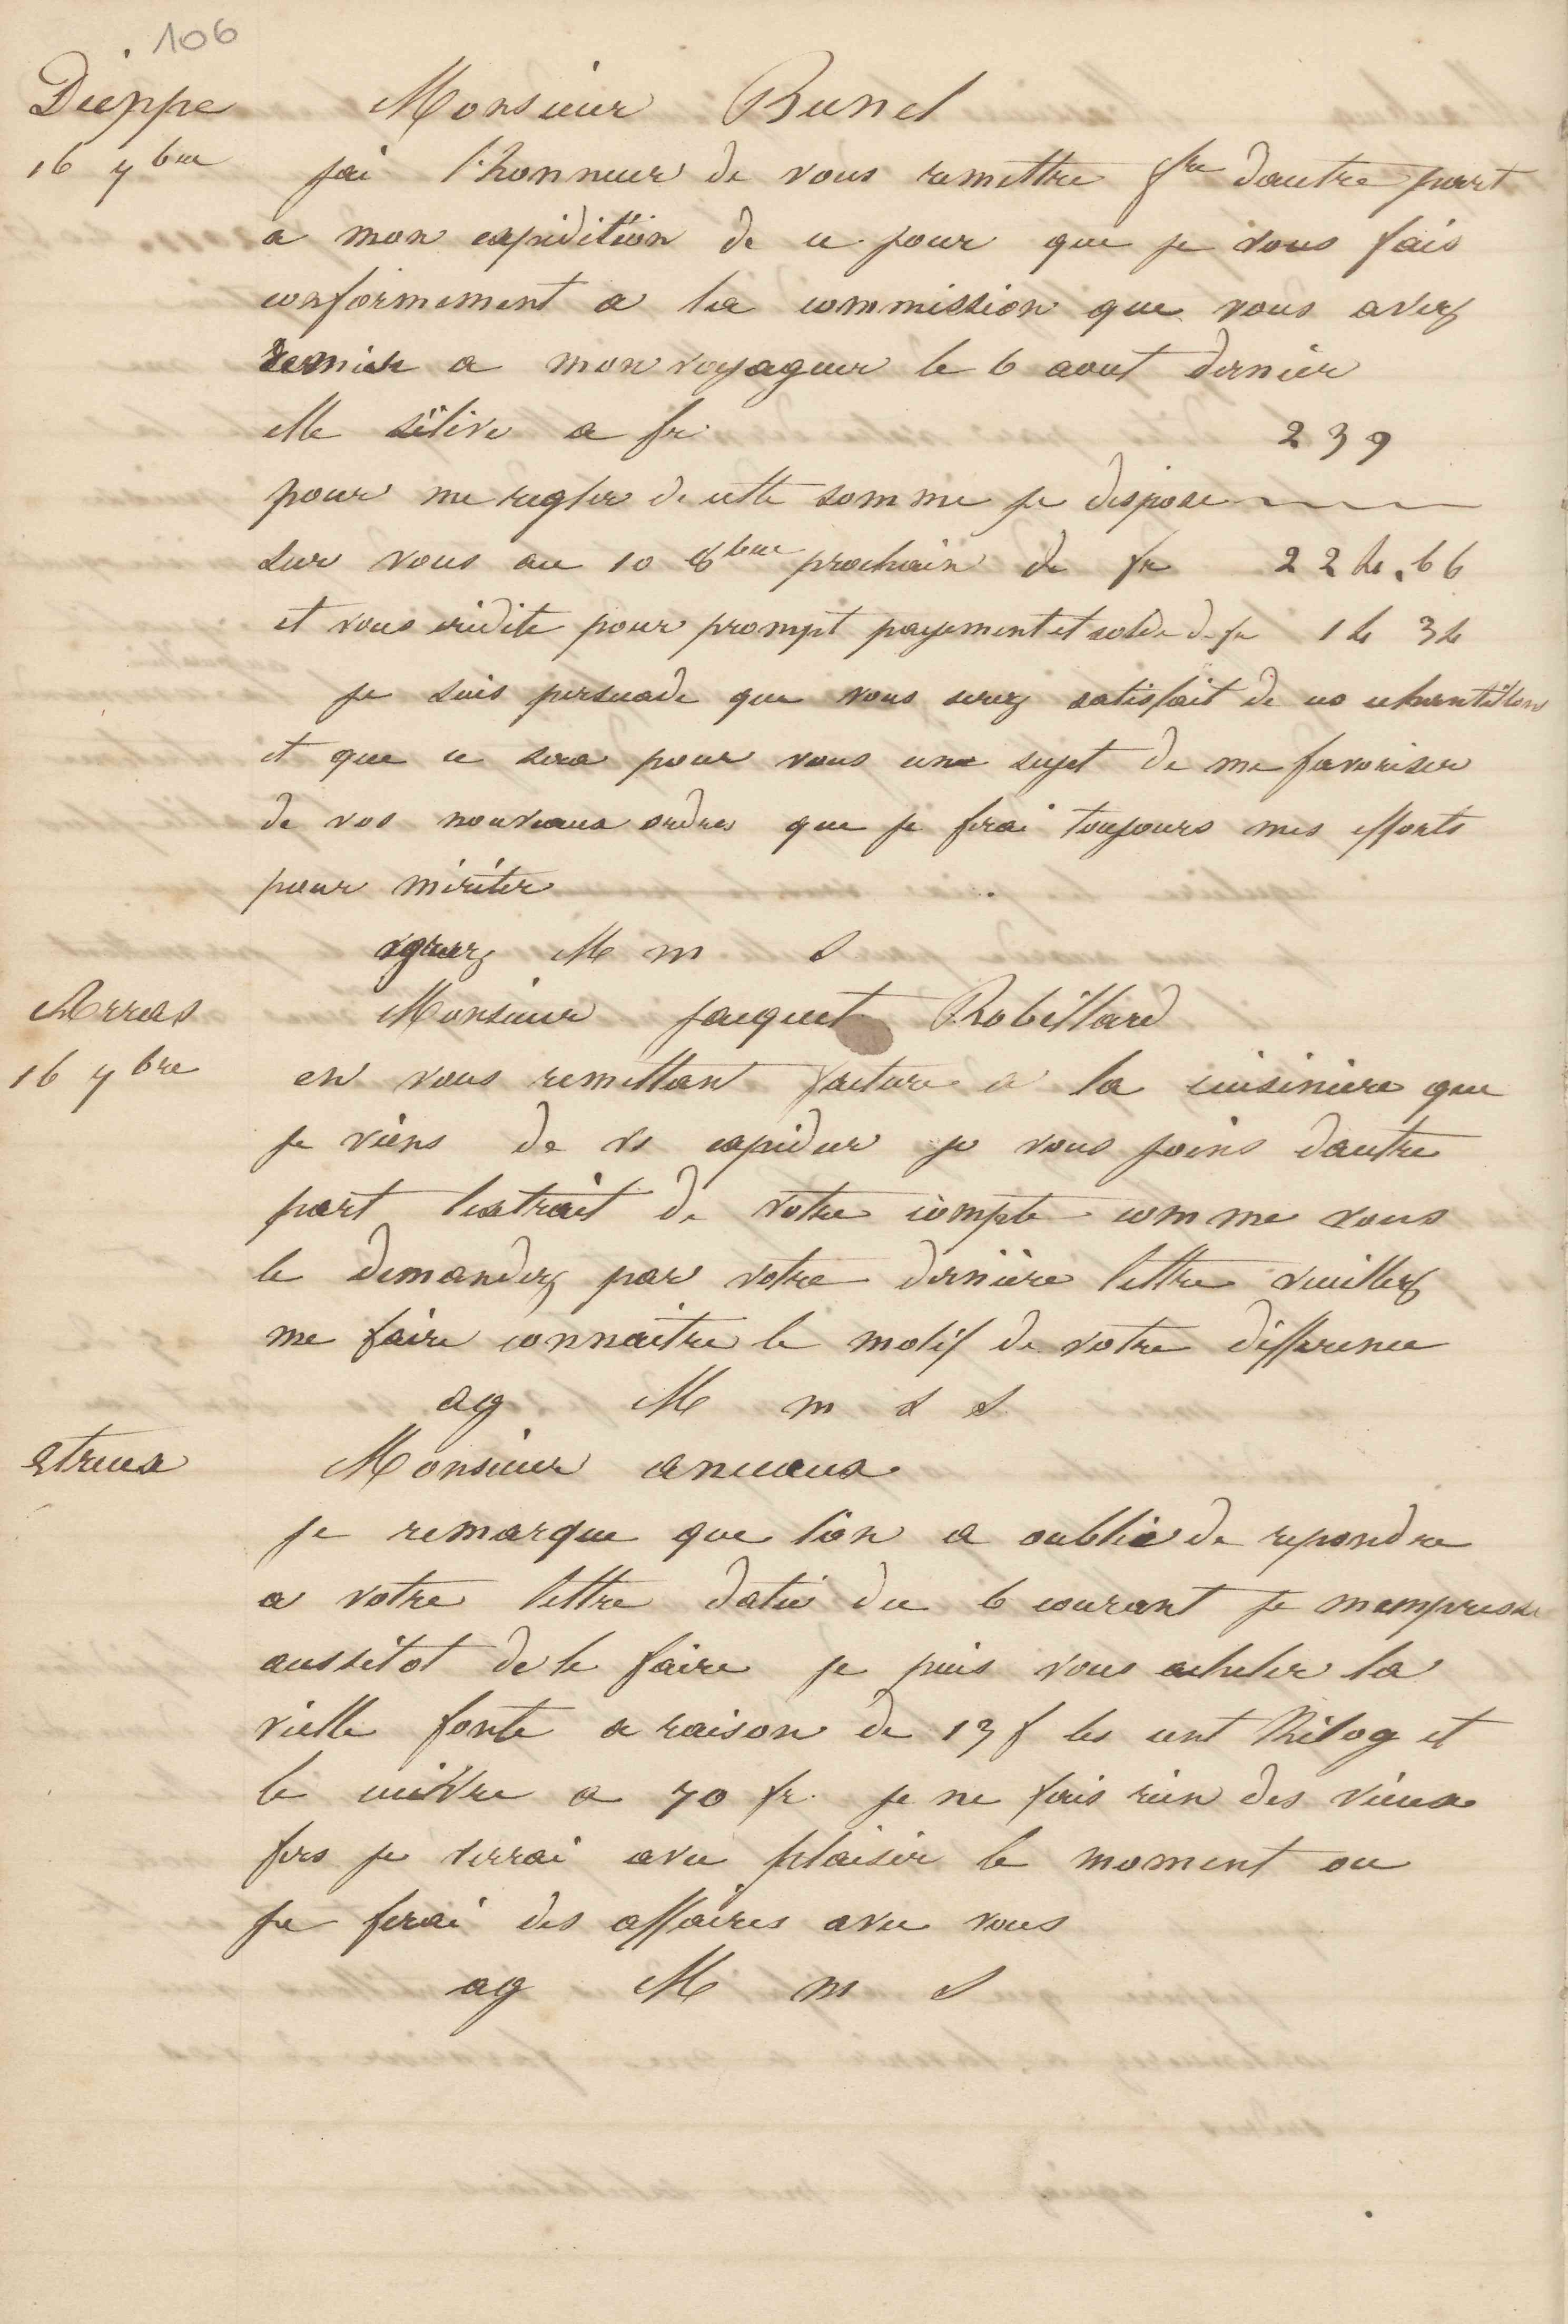 106
Dieppe Monsieur Bunel
16 7bre jai l'honneur de vous remettre fre dautre part
a mon expedition de ce jour que je vous fais
conformement a la commission que vous avez
remise a mon voyageur le 6 aout dernier
elle séléve a fr. 239
pour me regler de cette somme je dispose
sur vous au 10 8bre prochain de fr 224.66
et vous crédite pour prompt payement et solde de fr 14 34
je suis persuadé que vous serez satisfait de ces echantillons
et que ce sera pour vous une sujet de me favoriser
de vos nouveaux ordres que je ferai toujours mes efforts
pour mériter
agreez M m S
Arras Monsieur jacquet Robillard
16 7bre en vous remettan facture a la cuisiniere que
je viens de vs expedier je vous joins dautre
part lextrait de votre compte comme vous
le demandez par votre dernière lettre veuillez
me faire connaitre le motif de votre difference
ag M m s S
Etreux Monsieur anceaux
je remarque que l'on a oublié de repondre
a votre lettre datée du 6 courant je mempresse
aussitot de le faire je puis vous acheter la
vielle fonte a raison de 13 f les cent Kilog et
le cuivre a 70 fr. je ne fais rien des vieux
fers je verrai avec plaisir le moment ou
je ferai des affaires avec vous
ag M m S